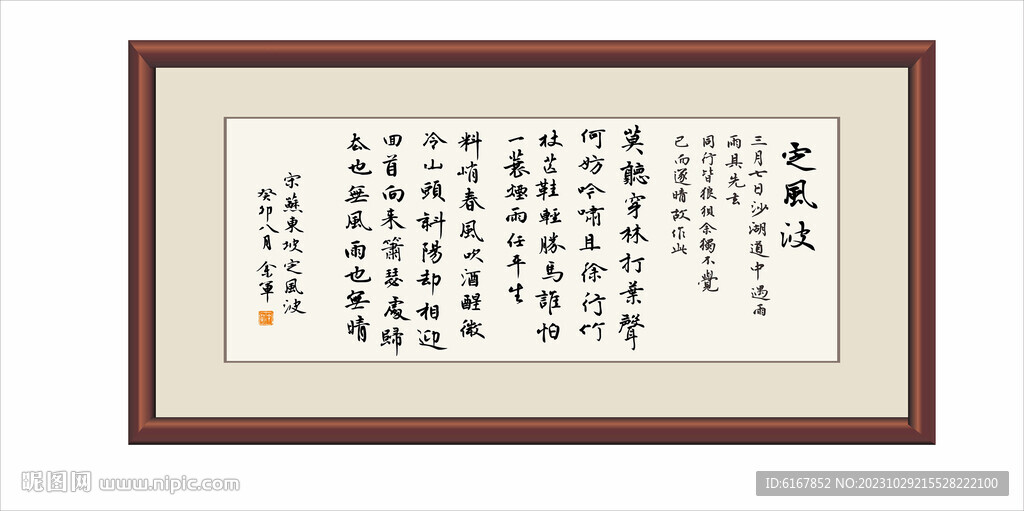 定風波
三月七日沙湖道中遇雨
雨具先去
同行皆狼狽余獨不覺
已而遂晴故作此
莫聽穿林打葉聲
何妨吟嘯且徐行竹
杖芒鞋輕勝馬誰怕
一蓑煙雨任平生
料峭春風吹酒醒微
冷山頭斜陽却相迎
回首向来簫瑟處歸
去也無風雨也無晴
宋蘇東坡定風波
癸卯八月金軍
昵图网 www.nipic.com
ID:6167852 NO:20231029215528222100